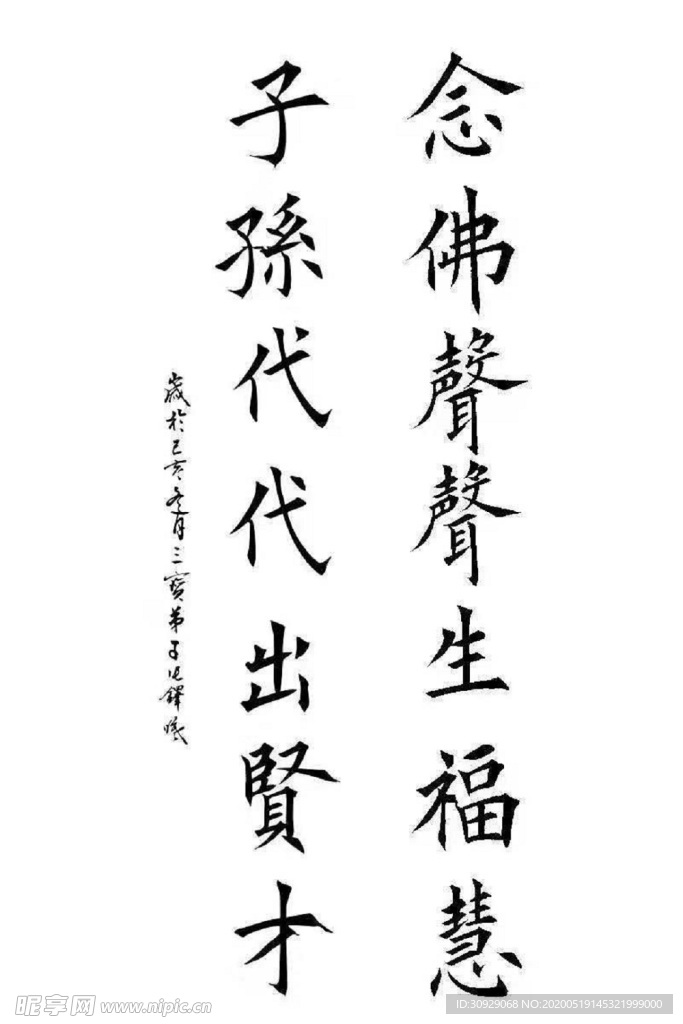 念佛聲聲生福慧
子孫代代出賢才
歲於己亥冬月三寶弟子
昵享网 www.nipic.cn
ID:30929068 NO:20200519145321999000